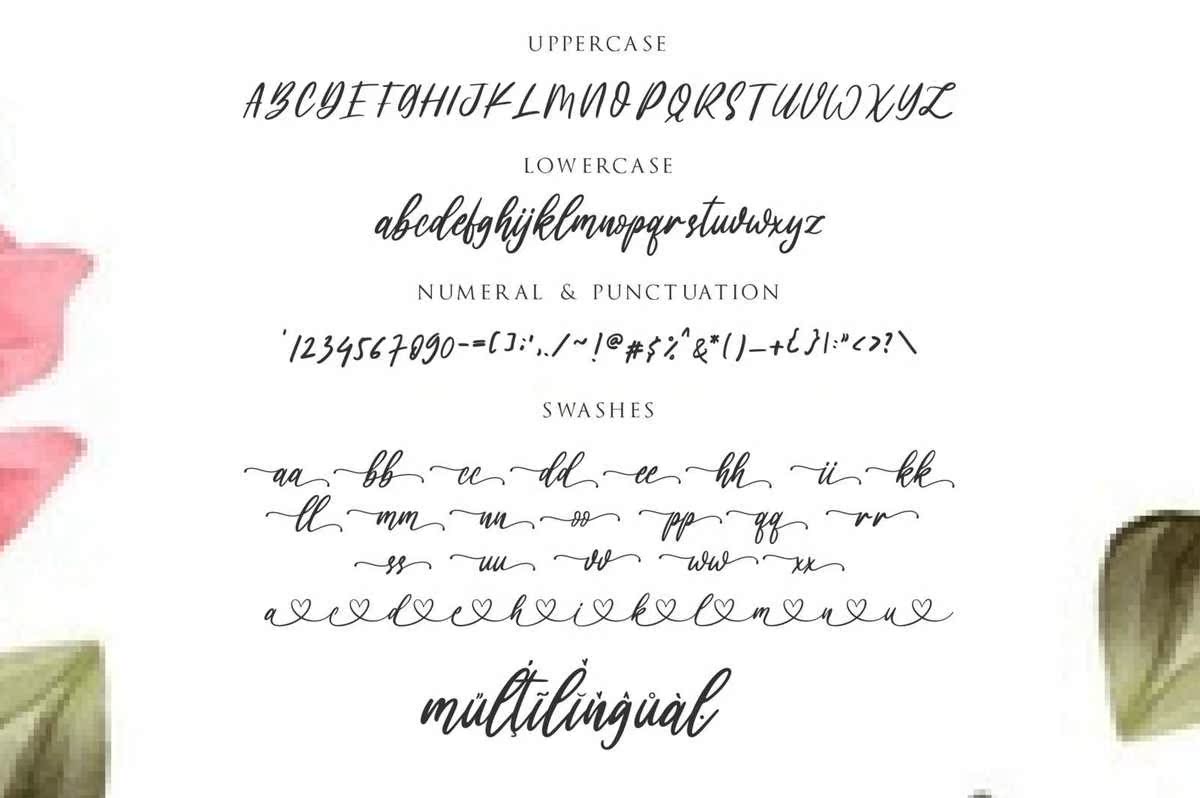 UPPERCASE
ABCDEFGHIJKLMNOPQRSTUVWXYZ
LOWERCASE
abcdefghijklmnopqrstuvwxyz
NUMERAL & PUNCTUATION
`1234567890-=[];',./~!@#$%^&*()_+{}|:"<>?\
SWASHES
aa bb cc dd ee hh ii kk
ll mm nn oo pp qq rr
ss uu vv ww xx
a♡c♡d♡e♡h♡i♡k♡l♡m♡n♡u♡
műļţĩlĭňĝůàŀ